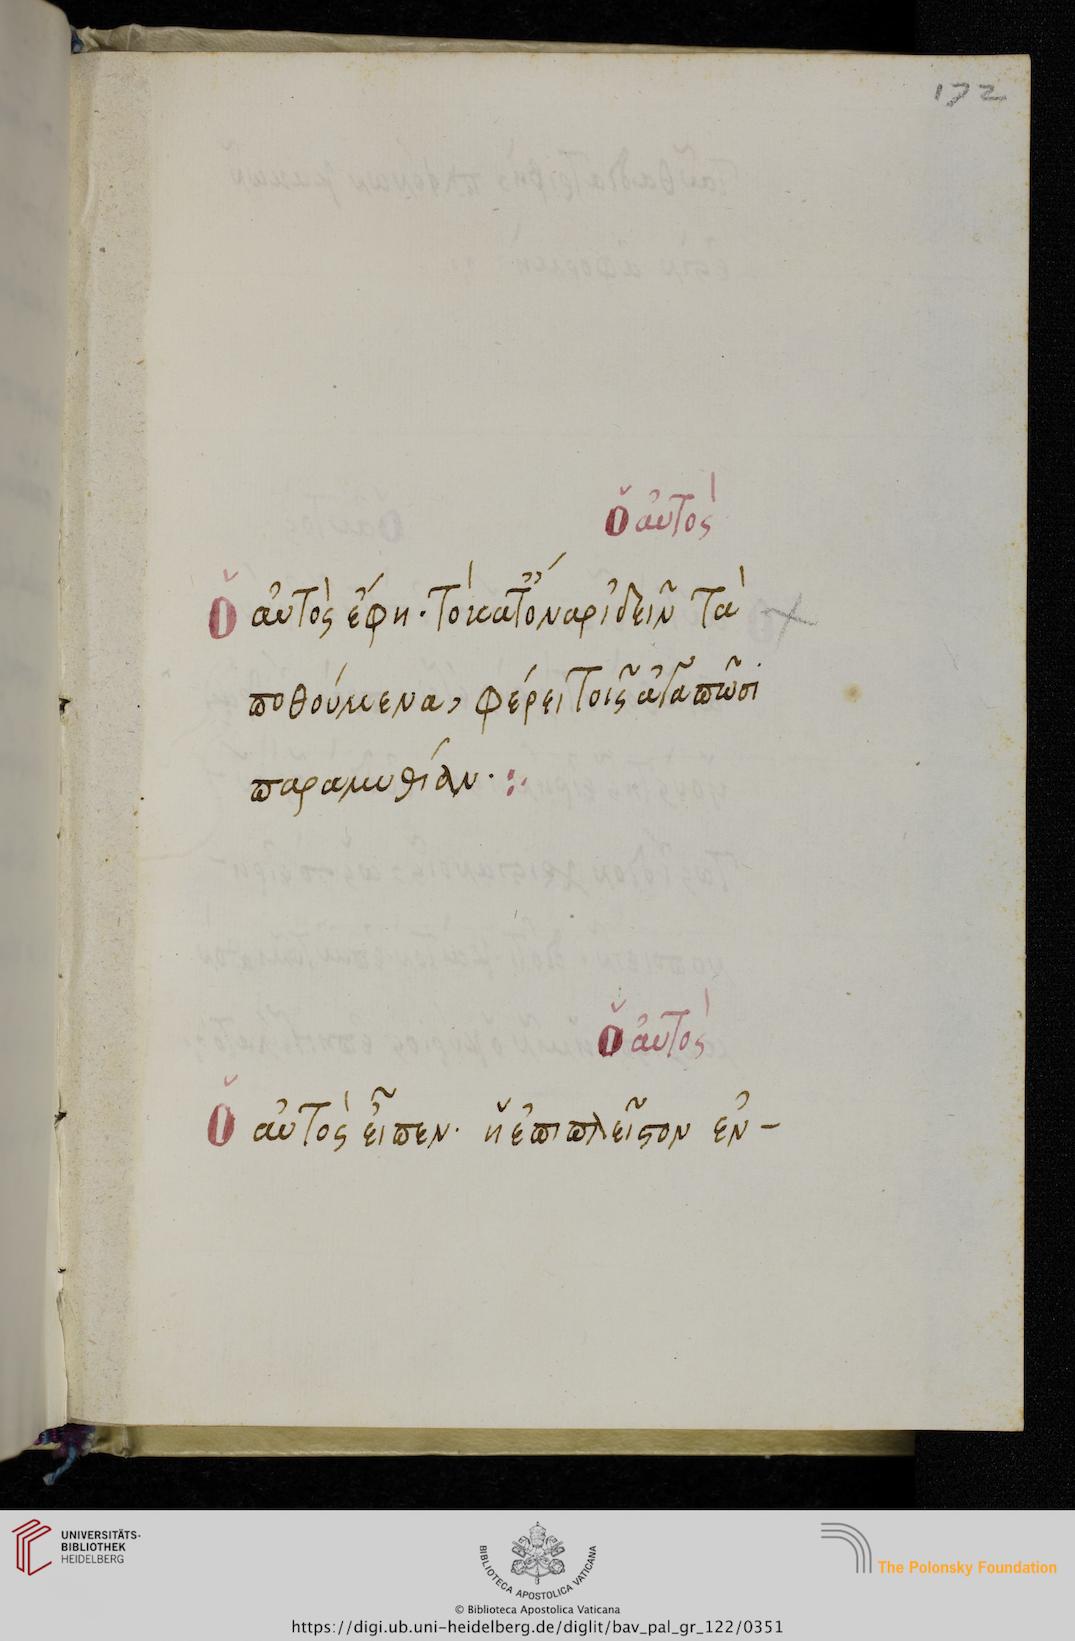 172
ὁ αὐτός
ὁ αὐτὸς ἔφη· τὸ κατ' ὄναρ ἰδεῖν τὰ
ποθούμενα, φέρει τοῖς ἀγαπῶσι
παραμυθίαν·
ὁ αὐτός
ὁ αὐτὸς εἶπεν· ἡ ἐπιπλεῖστον ἐν-
UNIVERSITÄTS-
BIBLIOTHEK
HEIDELBERG
BIBLIOTECA APOSTOLICA VATICANA
The Polonsky Foundation
© Biblioteca Apostolica Vaticana
https://digi.ub.uni-heidelberg.de/diglit/bav_pal_gr_122/0351